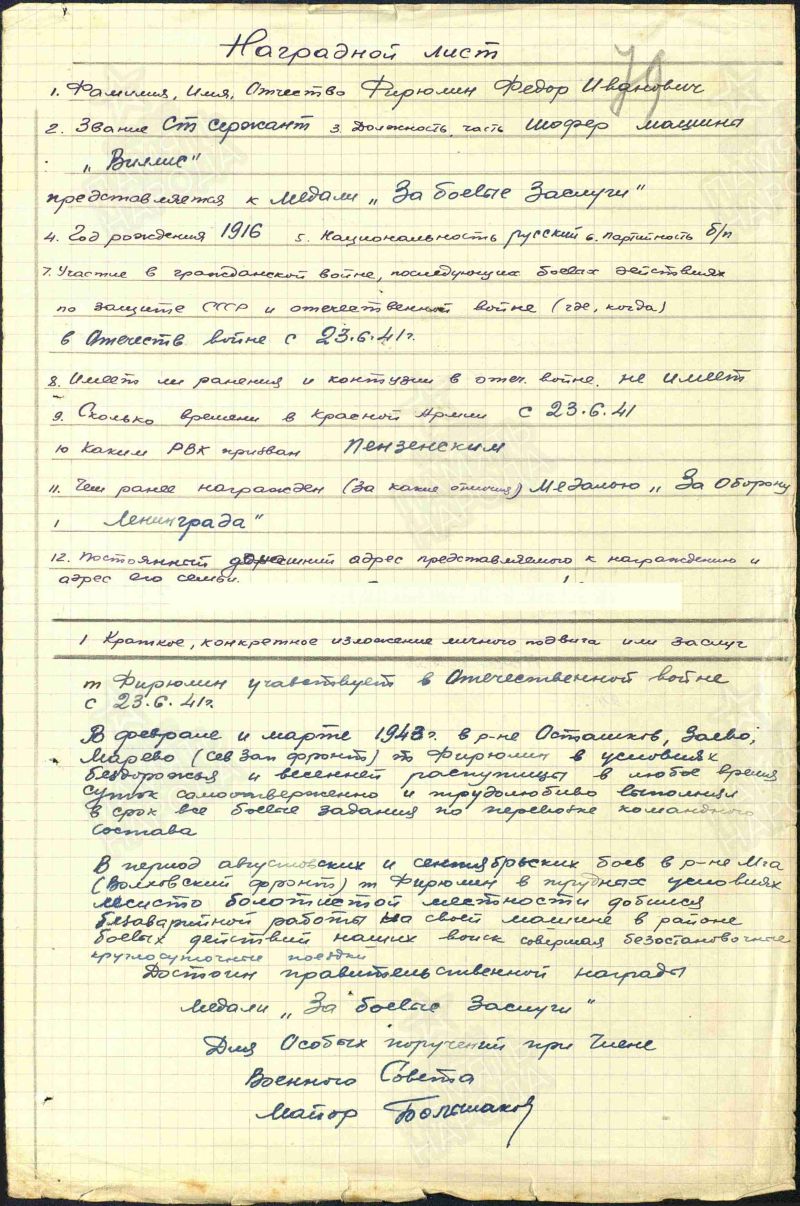 Наградной лист
79
1. Фамилия, Имя, Отчество Фирюлин Федор Иванович
2. Звание Ст сержант 3 Должность, часть шофер машина
„Виллис"
представляется к медали „За боевые Заслуги"
4. Год рождения 1916 5. Национальность русский 6. партийность б/п
7. Участие в гражданской войне, последующих боевых действиях
по защите СССР и отечественной войне (где, когда)
в Отечеств войне с 23.6.41г.
8. Имеет ли ранения и контузии в отеч. войне. не имеет
9. Сколько времени в Красной Армии с 23.6.41
10 Каким РВК призван Пензенским
11. Чем ранее награжден (за какие отличия) Медалью „За Оборону
Ленинграда"
12. Постоянный домашний адрес представляемого к награждению и
адрес его семьи.
1 Краткое, конкретное изложение личного подвига или заслуг
т Фирюлин учавствует в Отечественной войне
с 23.6.41г.
В феврале и марте 1943г. в р-не Осташков, Заево,
Марево (Сев Зап фронт) т Фирюлин в условиях
бездорожья и весенней распутицы в любое время
суток самоотверженно и трудолюбиво выполнял
в срок все боевые задания по перевозке командного
состава
В период августовских и сентябрьских боев в р-не Мга
(Волховский фронт) т Фирюлин в трудных условиях
лесисто болотистой местности добился
безаварийной работы на своей машине в районе
боевых действий наших войск совершая безостановочные
круглосуточные поездки
Достоин правительственной награды
медали „За боевые Заслуги"
Для Особых поручений при Члене
Военного Совета
Майор Большаков